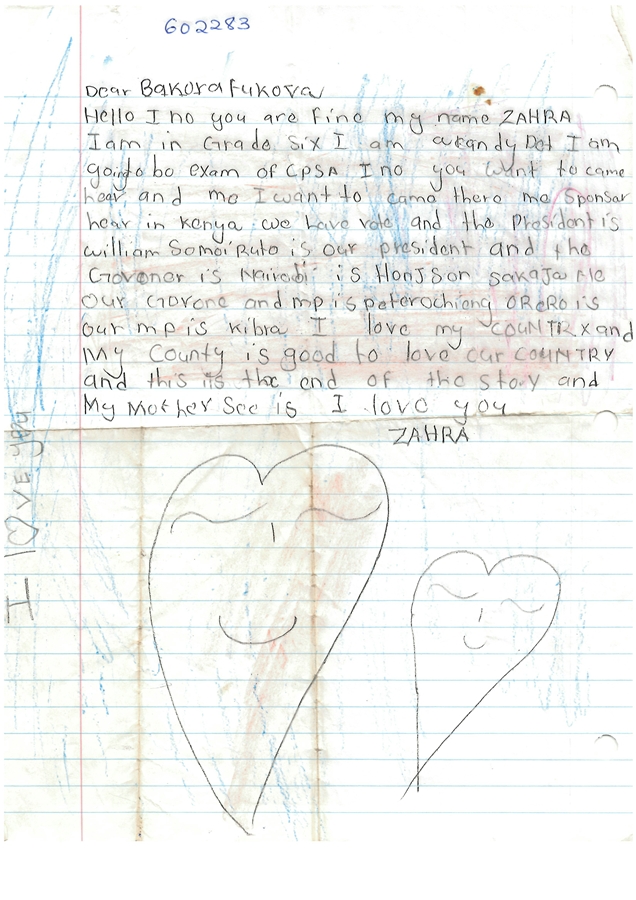 602283
Dear Bakora Fukova
Hello I no you are fine my name ZAHRA
I am in Grade Six I am I am
to bo exam of CPSA I no you want to came
hear and me I want to came there me Sponsar
hear in Kenya we have vote and the President is
William Somoi Ruto is our president and the
Govoner is Nairobi is Sakaja He
our Govone and mp is peterochieng ORERO is
our mp is kibra I love my COUNTRX and
My County is good to love our COUNTRY
and this is the end of the story and
My Mother See is I love you
ZAHRA
I LOVE you